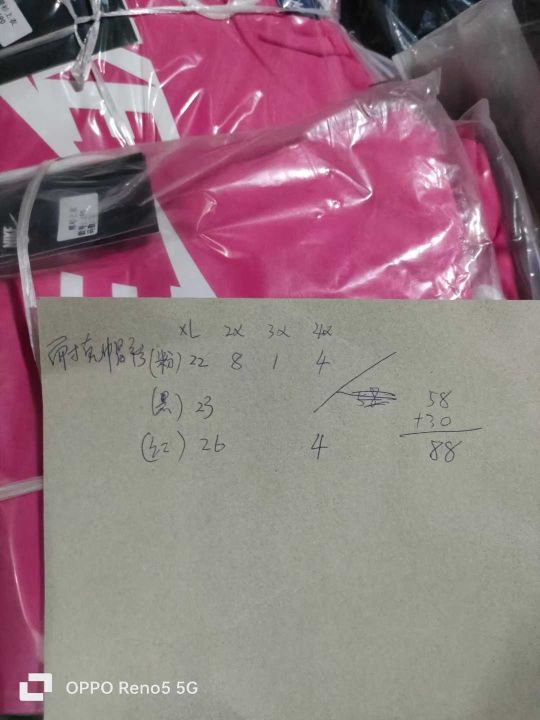 NIKE
XL 2X 3X 4X
耐克帽衫(粉) 22 8 1 4
(黑) 23
58
(红) 26 4
+30
88
OPPO Reno5 5G